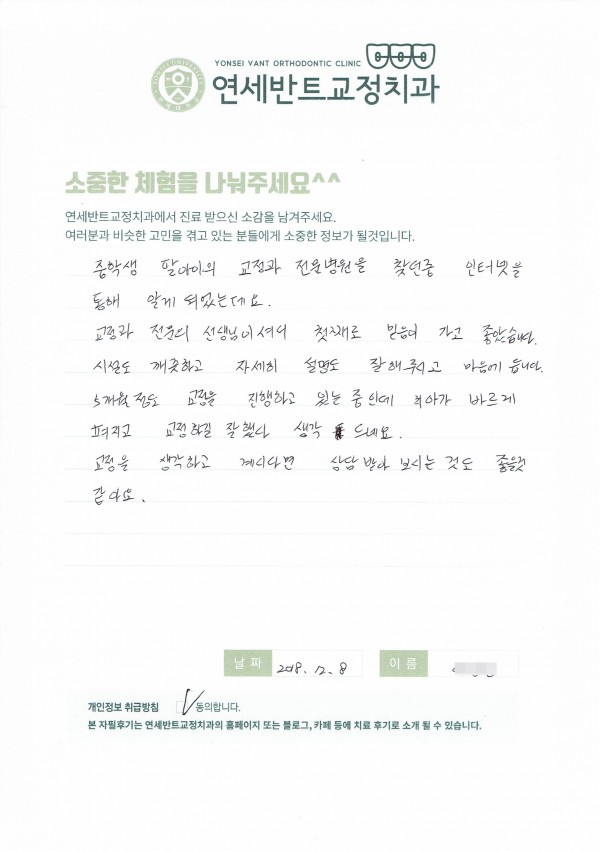 YONSEI VANT ORTHODONTIC CLINIC
연세반트교정치과
소중한 체험을 나눠주세요^^
연세반트교정치과에서 진료 받으신 소감을 남겨주세요.
여러분과 비슷한 고민을 겪고 있는 분들에게 소중한 정보가 될것입니다.
중학생 딸아이의 교정과 전문병원을 찾던중 인터넷을
통해 알게 되었는데요.
교정과 전문의 선생님이셔서 첫째로 믿음이 가고 좋았습니다.
시설도 깨끗하고 자세히 설명도 잘해주시고 마음에 듭니다.
5개월정도 교정을 진행하고 있는 중인데 치아가 바르게
펴지고 교정하길 잘했다 생각 드네요.
교정을 생각하고 계시다면 상담 받아 보시는 것도 좋을것
같아요.
날 짜 2018. 12. 8 이 름
개인정보 취급방침 동의합니다.
본 자필후기는 연세반트교정치과의 홈페이지 또는 블로그, 카페 등에 치료 후기로 소개 될 수 있습니다.